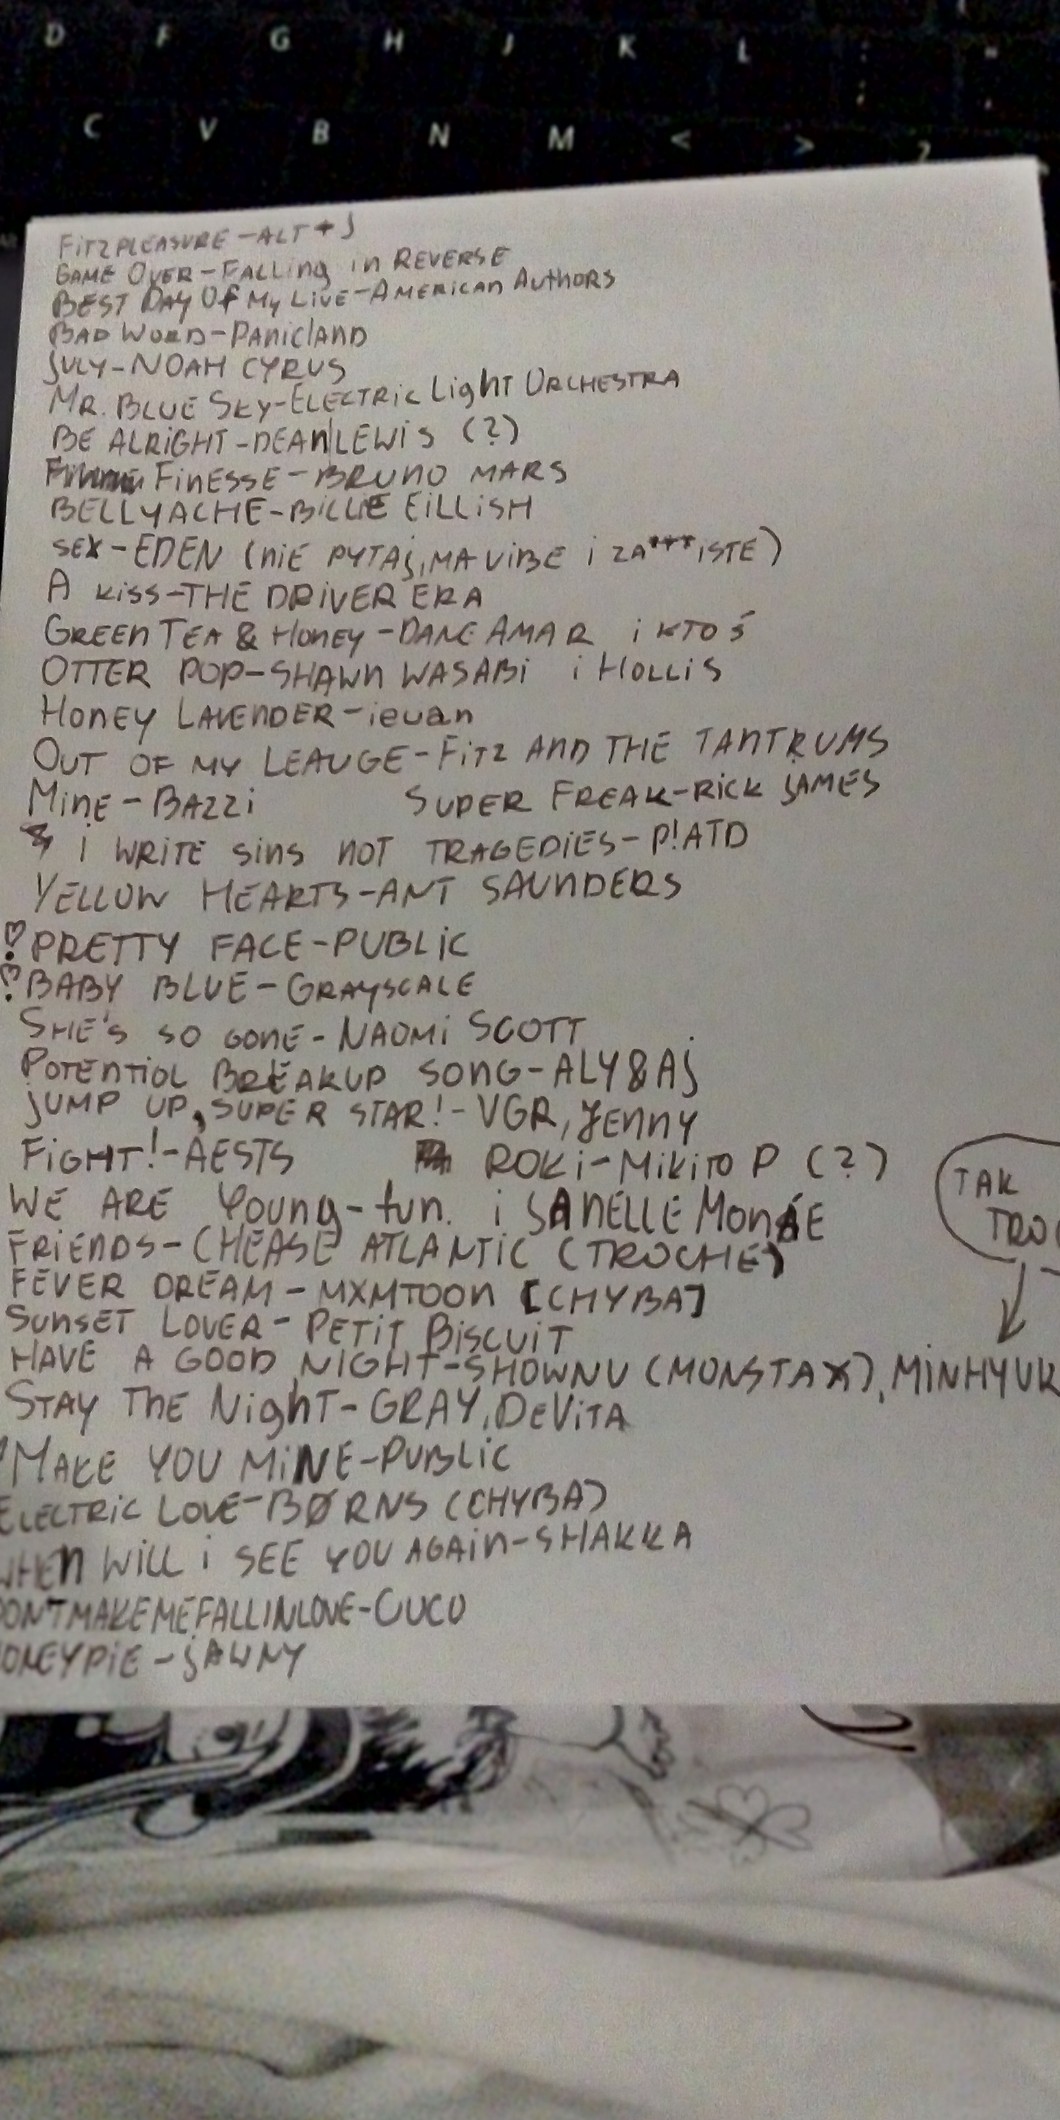 D F G H J K L : "
;
C V B N M < > ?
FITZPLEASURE - ALT + J
GAME OVER - FALLING IN REVERSE
BEST DAY OF MY LIVE - AMERICAN AUTHORS
BAD WORD - PANICLAND
JULY - NOAH CYRUS
MR. BLUE SKY - ELECTRIC LIGHT ORCHESTRA
BE ALRIGHT - DEAN LEWIS (?)
FINESSE - BRUNO MARS
BELLYACHE - BILLIE EILLISH
SEX - EDEN (NIE PYTAJ, MA VIBE I ZA***ISTE)
A KISS - THE DRIVER ERA
GREEN TEA & HONEY - DANE AMAR I KTOŚ
OTTER POP - SHAWN WASABI I HOLLIS
HONEY LAVENDER - ievan
OUT OF MY LEAUGE - FITZ AND THE TANTRUMS
MINE - BAZZI SUPER FREAK - RICK JAMES
I WRITE SINS NOT TRAGEDIES - P!ATD
YELLOW HEARTS - ANT SAUNDERS
PRETTY FACE - PUBLIC
BABY BLUE - GRAYSCALE
SHE'S SO GONE - NAOMI SCOTT
POTENTIOL BREAKUP SONG - ALY & AJ
JUMP UP, SUPER STAR! - VGR, JENNY
FIGHT! - AESTS ROKI - MIKITO P (?)
WE ARE YOUNG - fun. I JANELLE MONÁE
FRIENDS - CHEASE ATLANTIC (TROCHE)
FEVER DREAM - MXMTOON [CHYBA]
TAK
TRO
SUNSET LOVER - PETIT BISCUIT
HAVE A GOOD NIGHT - SHOWNU (MONSTA X), MINHYUK
STAY THE NIGHT - GRAY, DEVITA
MAKE YOU MINE - PUBLIC
ELECTRIC LOVE - BØRNS (CHYBA)
WHEN WILL I SEE YOU AGAIN - SHAKKA
DONTMAKEMEFALLINLOVE - CUCO
HONEYPIE - JAWNY